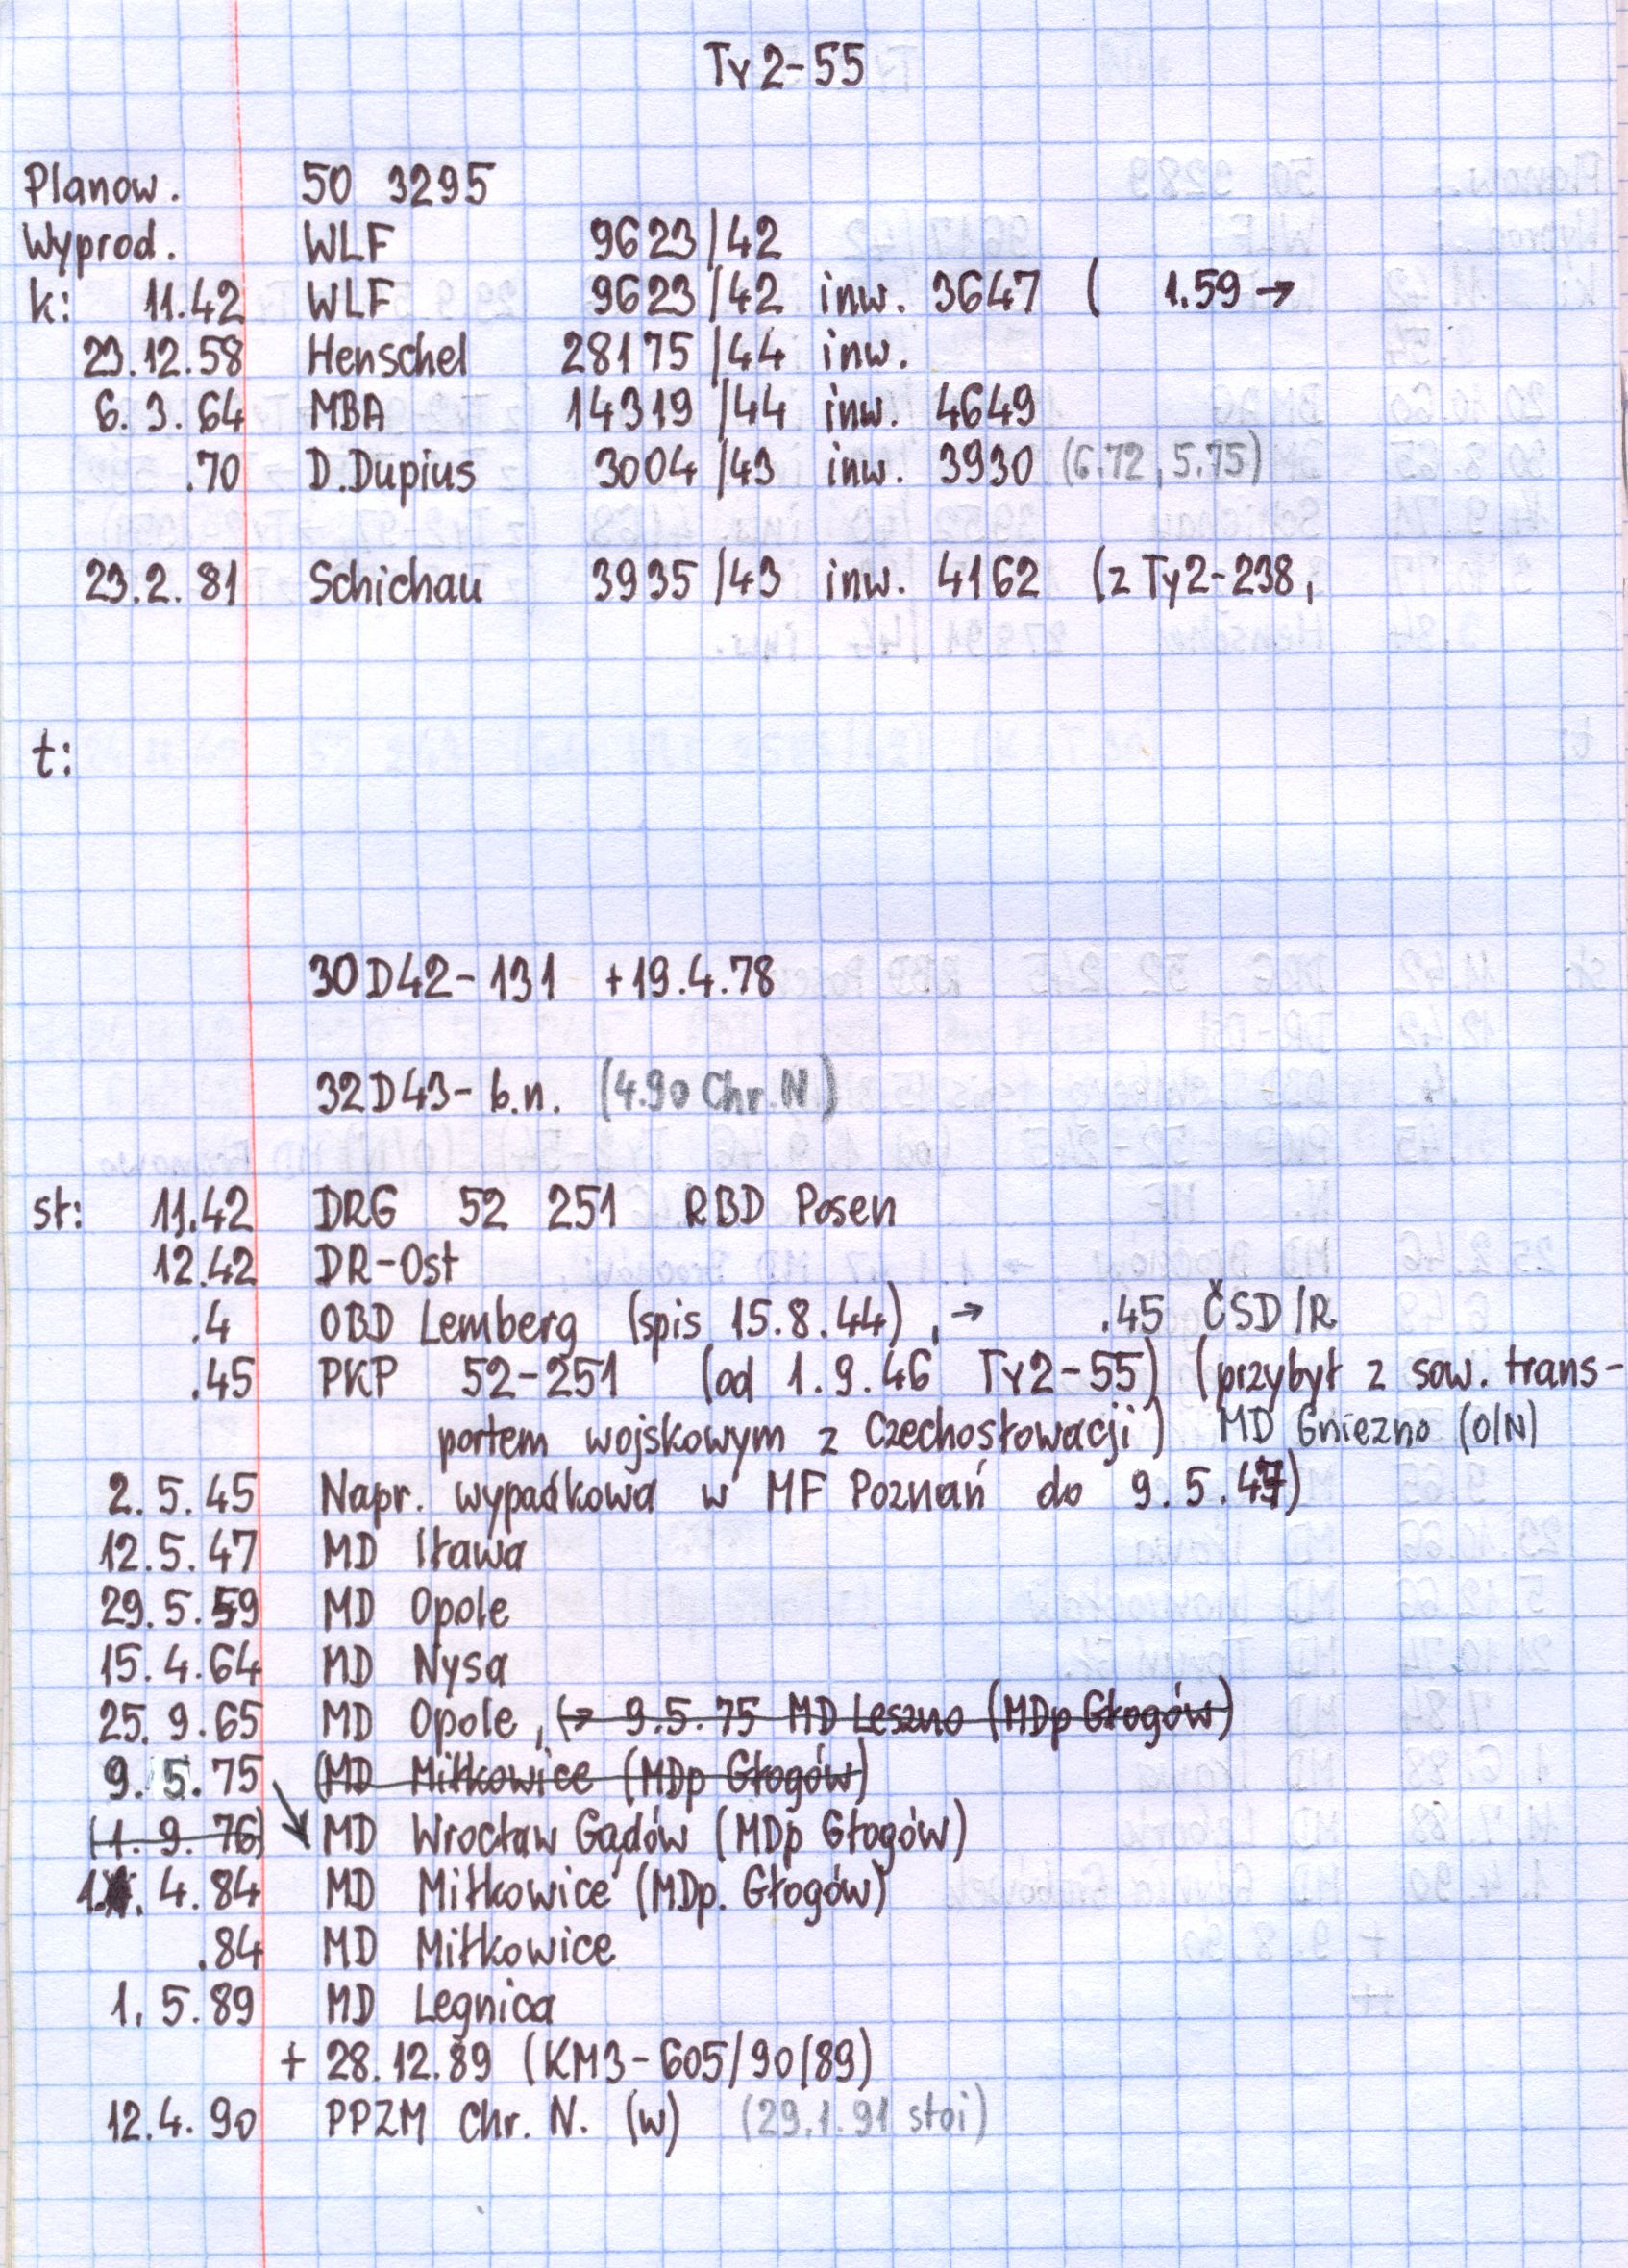 Ty2-55
Planow. 50 3295
Wyprod. WLF 9623/42
k: 11.42 WLF 9623/42 inw. 3647 ( 1.59 →
23.12.58 Henschel 28175/44 inw.
6.3.64 MBA 14319/44 inw. 4649
.70 D.Dupius 3004/43 inw. 3930 (6.72, 5.75)
23.2.81 Schichau 3935/43 inw. 4162 (z Ty2-238,
t:
30D42-131 +19.4.78
32D43-b.n. (4.90 Chr.N)
st: 11.42 DRG 52 251 RBD Posen
12.42 DR-Ost
.4 OBD Lemberg (spis 15.8.44), → .45 ČSD/R
.45 PKP 52-251 (od 1.9.46 Ty2-55) (przybył z sow. trans-
portem wojskowym z Czechosłowacji) MD Gniezno (O/N)
2.5.45 Napr. wypadkowa w MF Poznań do 9.5.47)
12.5.47 MD Iława
29.5.59 MD Opole
15.4.64 MD Nysa
25.9.65 MD Opole, (→ 9.5.75 MD Leszno (MDp Głogów)
9.5.75 (MD Miłkowice (MDp Głogów)
(1.9.76) MD Wrocław Gądów (MDp Głogów)
1. 4.84 MD Miłkowice (MDp. Głogów)
.84 MD Miłkowice
1.5.89 MD Legnica
+ 28.12.89 (KM3-605/90/89)
12.4.90 PPZM Chr. N. (w) (29.1.91 stoi)